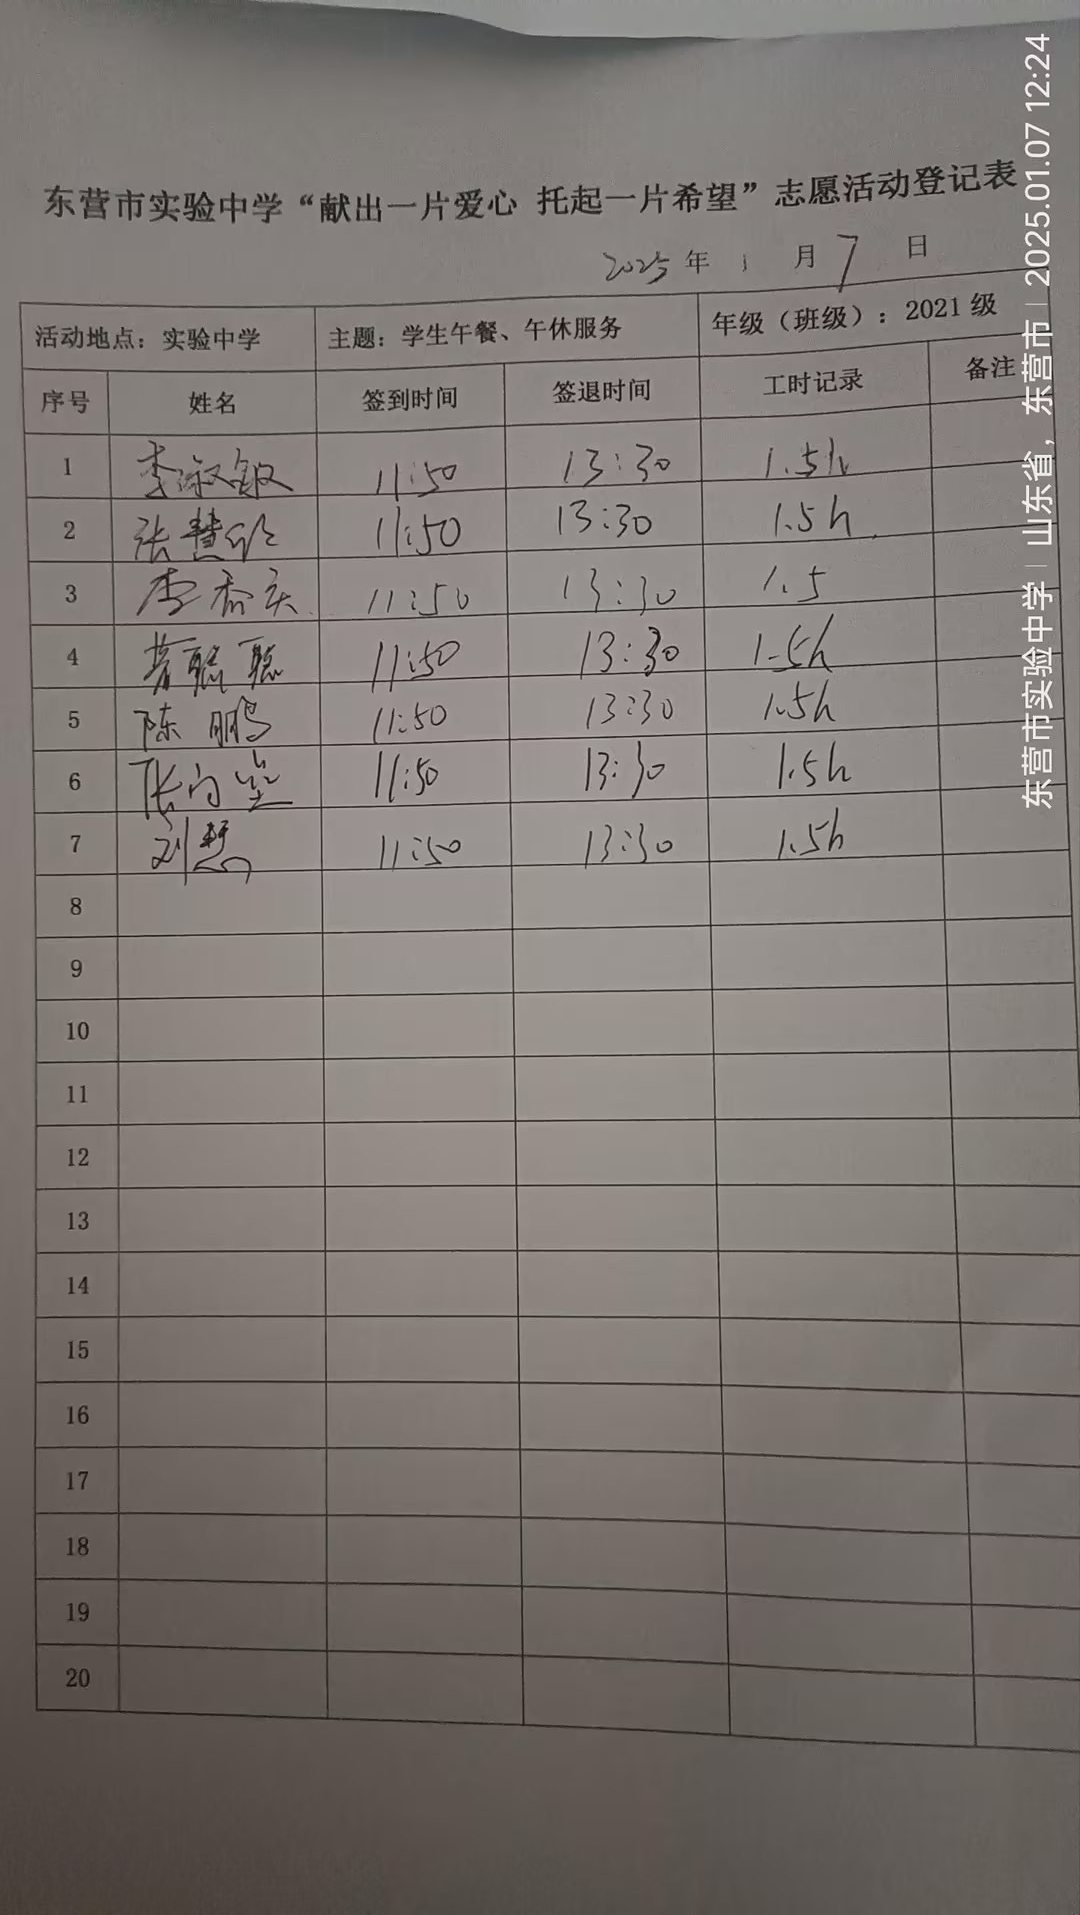 东营市实验中学“献出一片爱心 托起一片希望”志愿活动登记表
2025 年 1 月 7 日
活动地点：实验中学 主题：学生午餐、午休服务 年级（班级）：2021 级
序号 姓名 签到时间 签退时间 工时记录 备注
1 李淑敏 11:50 13:30 1.5h
2 张慧 11:50 13:30 1.5h
3 李 11:50 13:30 1.5
4 聪聪 11:50 13:30 1.5h
5 陈鹏 11:50 13:30 1.5h
6 张 11:50 13:30 1.5h
7 刘慧 11:50 13:30 1.5h
8
9
10
11
12
13
14
15
16
17
18
19
20
东营市实验中学 | 山东省，东营市 | 2025.01.07 12:24